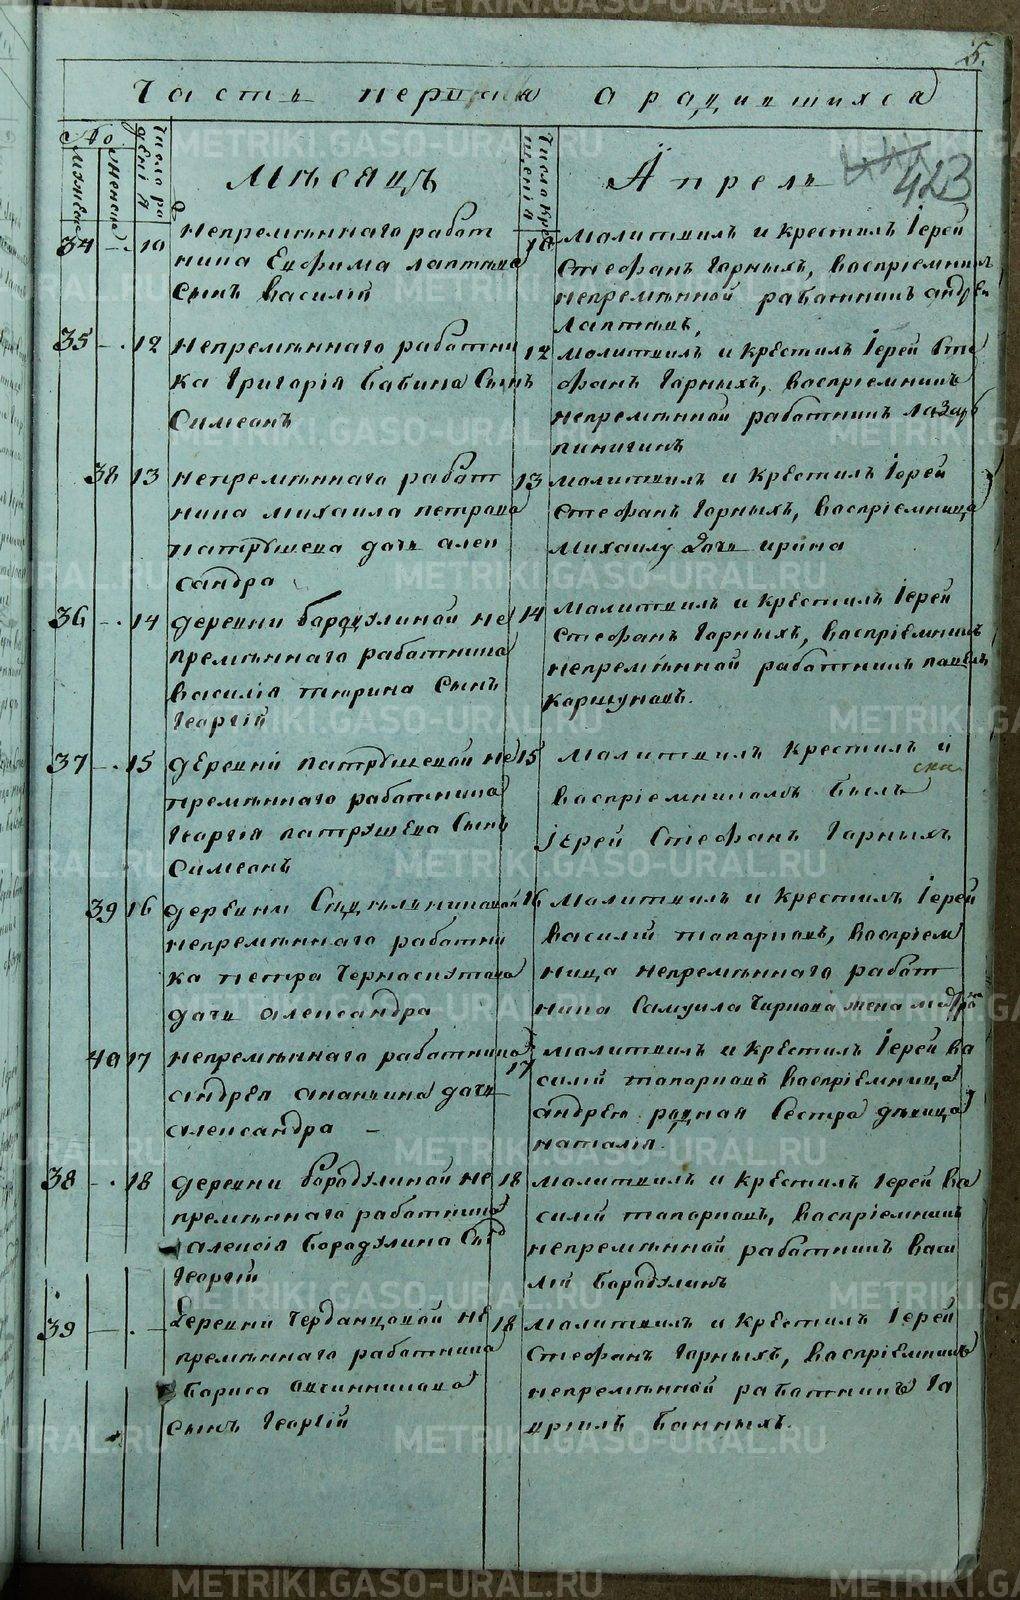 5.
Часть первая о родившихся
423
№
мужеска
женска
Число рождениія
Мѣсяцъ
Число крещеніія
Апрель
34 — . 10 Непремѣннаго работ
ника Ефима лаптева
сынъ Василій
10 Молитвилъ и крестилъ Іерей
Стефанъ Горныхъ, воспріемникъ
непремѣнной работникъ андрей
лаптевъ,
35 — . 12 непремѣннаго работни
ка Григорія бабина Сынъ
Симеонъ
12 молитвилъ и крестилъ Іерей Сте
фанъ Горныхъ, воспріемникъ
непремѣнной работникъ лазарь
пинигинъ
38 13 непремѣннаго работ
ника михаила петрова
патрушева дочь алек
сандра
13 молитвилъ и крестилъ Іерей
Стефанъ Горныхъ, воспріемница
михаилу дочь ирина
36 — . 14 деревни бородулиной не
премѣннаго работника
василія тюрина Сынъ
Георгій
14 молитвилъ и крестилъ Іерей
Стефанъ Горныхъ, воспріемникъ
непремѣнной работникъ павелъ
коршуновъ.
37 — . 15 деревни патрушевой не
премѣннаго работника
Георгія патрушева Сынъ
Симеонъ
15 молитвилъ крестилъ и
воспріемникомъ былъ
Іерей Стефанъ Горныхъ
39 16 деревни Сидѣльниковой
непремѣннаго работни
ка петра Черноскутова
дочь александра
16 молитвилъ и крестилъ Іерей
василій топорковъ, воспріем
ница непремѣннаго работ
ника Самуила Чиркова жена
40 17 непремѣннаго работника
андрея ананьина дочь
александра —
17 молитвилъ и крестилъ Іерей ва
силій топорковъ воспріемница
андрею родная Сестра дѣвица
наталія.
38 — . 18 деревни бородулиной не
премѣннаго работника
алексія бородулина Сынъ
Георгій
18 молитвилъ и крестилъ Іерей ва
силій топорковъ, воспріемникъ
непремѣнной работникъ васи
лій бородулинъ
39 — . — Деревни Черданцовой не
премѣннаго работника
бориса овчинникова
сынъ Георгій
18 молитвилъ и крестилъ Іерей
Стефанъ Горныхъ, воспріемникъ
непремѣнной работникъ Га
вріилъ банныхъ.
METRIKI.GASO-URAL.RU